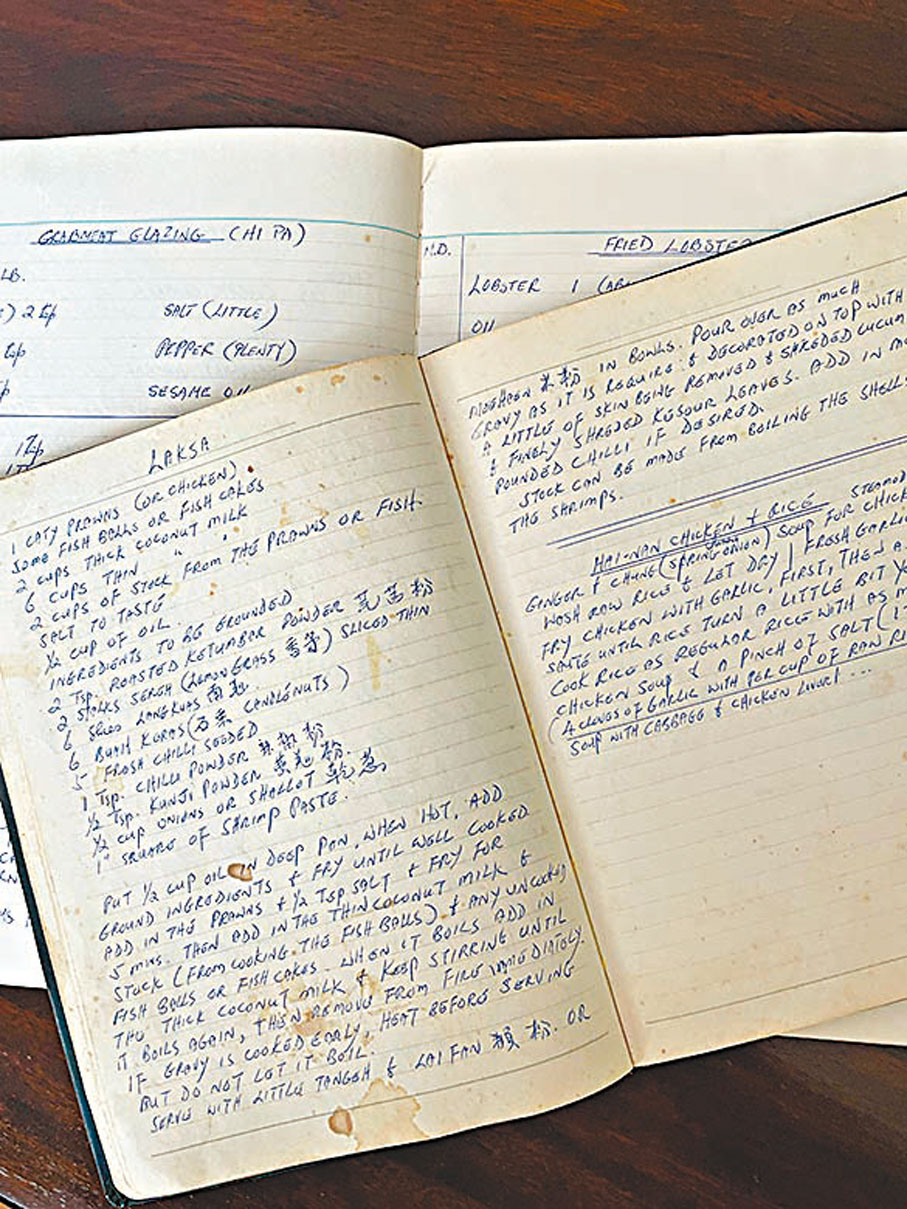 CRABMEAT GLAZING (HI PA)
LB.
SALT (LITTLE)
PEPPER (PLENTY)
SESAME OIL
N.D.
FRIED LOBSTER
LOBSTER 1
OIL
LAKSA
1 CATY PRAWNS (OR CHICKEN)
SOME FISH BALLS OR FISH CAKES
2 CUPS THICK COCONUT MILK
6 CUPS THIN " "
2 CUPS OF STOCK FROM THE PRAWNS OR FISH.
SALT TO TASTE
½ CUP OF OIL.
INGREDIENTS TO BE GROUNDED
2 TSP. ROASTED KETUMBAR POWDER 芫茜粉
2 STALKS SEREH (LEMONGRASS 香茅) SLICED THIN
6 SLICES LANGKUAS 南姜
6 BUAH KURAS (石栗 CANDLENUTS)
5 FRESH CHILLI SEEDED
1 TSP. CHILLI POWDER 辣椒粉
½ TSP. KUNJI POWDER 黄姜粉.
½ CUP ONIONS OR SHALLOT 乾葱
1" SQUARE OF SHRIMP PASTE.
PUT ½ CUP OIL IN DEEP PAN. WHEN HOT, ADD
GROUND INGREDIENTS & FRY UNTIL WELL COOKED
ADD IN THE PRAWNS & ½ TSP SALT & FRY FOR
5 MINS. THEN ADD IN THE THIN COCONUT MILK &
STOCK (FROM COOKING THE FISH BALLS) & ANY UNCOOKED
FISH BALLS OR FISH CAKES. WHEN IT BOILS ADD IN
THE THICK COCONUT MILK & KEEP STIRRING UNTIL
IT BOILS AGAIN, THEN REMOVE FROM FIRE IMMEDIATELY.
IF GRAVY IS COOKED EARLY, HEAT BEFORE SERVING
BUT DO NOT LET IT BOIL.
SERVE WITH LITTLE TANGEH & LAI FAN 瀨粉 OR
MEEHOON 米粉 IN BOWLS. POUR OVER AS MUCH
GRAVY AS IT IS REQUIRE & DECORATED ON TOP WITH
A LITTLE OF SKIN BEING REMOVED & SHREDED CUCUM
& FINELY SHREDED KESOUR LEAVES. ADD IN MO
POUNDED CHILLI IF DESIRED.
STOCK CAN BE MADE FROM BOILING THE SHELLS
THE SHRIMPS.
HAI-NAN CHICKEN & RICE STEAMED
GINGER & CHUNG (SPRING ONION) SOUP FOR CHICK
WASH RAW RICE & LET DRY | FRESH GARLIC
FRY CHICKEN WITH GARLIC, FIRST, THEN A
SAUTE UNTIL RICE TURN A LITTLE BIT YE
COOK RICE AS REGULAR RICE WITH AS M
CHICKEN SOUP & A PINCH OF SALT (1 T
(4 CLOVES OF GARLIC WITH PER CUP OF RAW RI
SOUP WITH CABBAGE & CHICKEN LIVER! ...